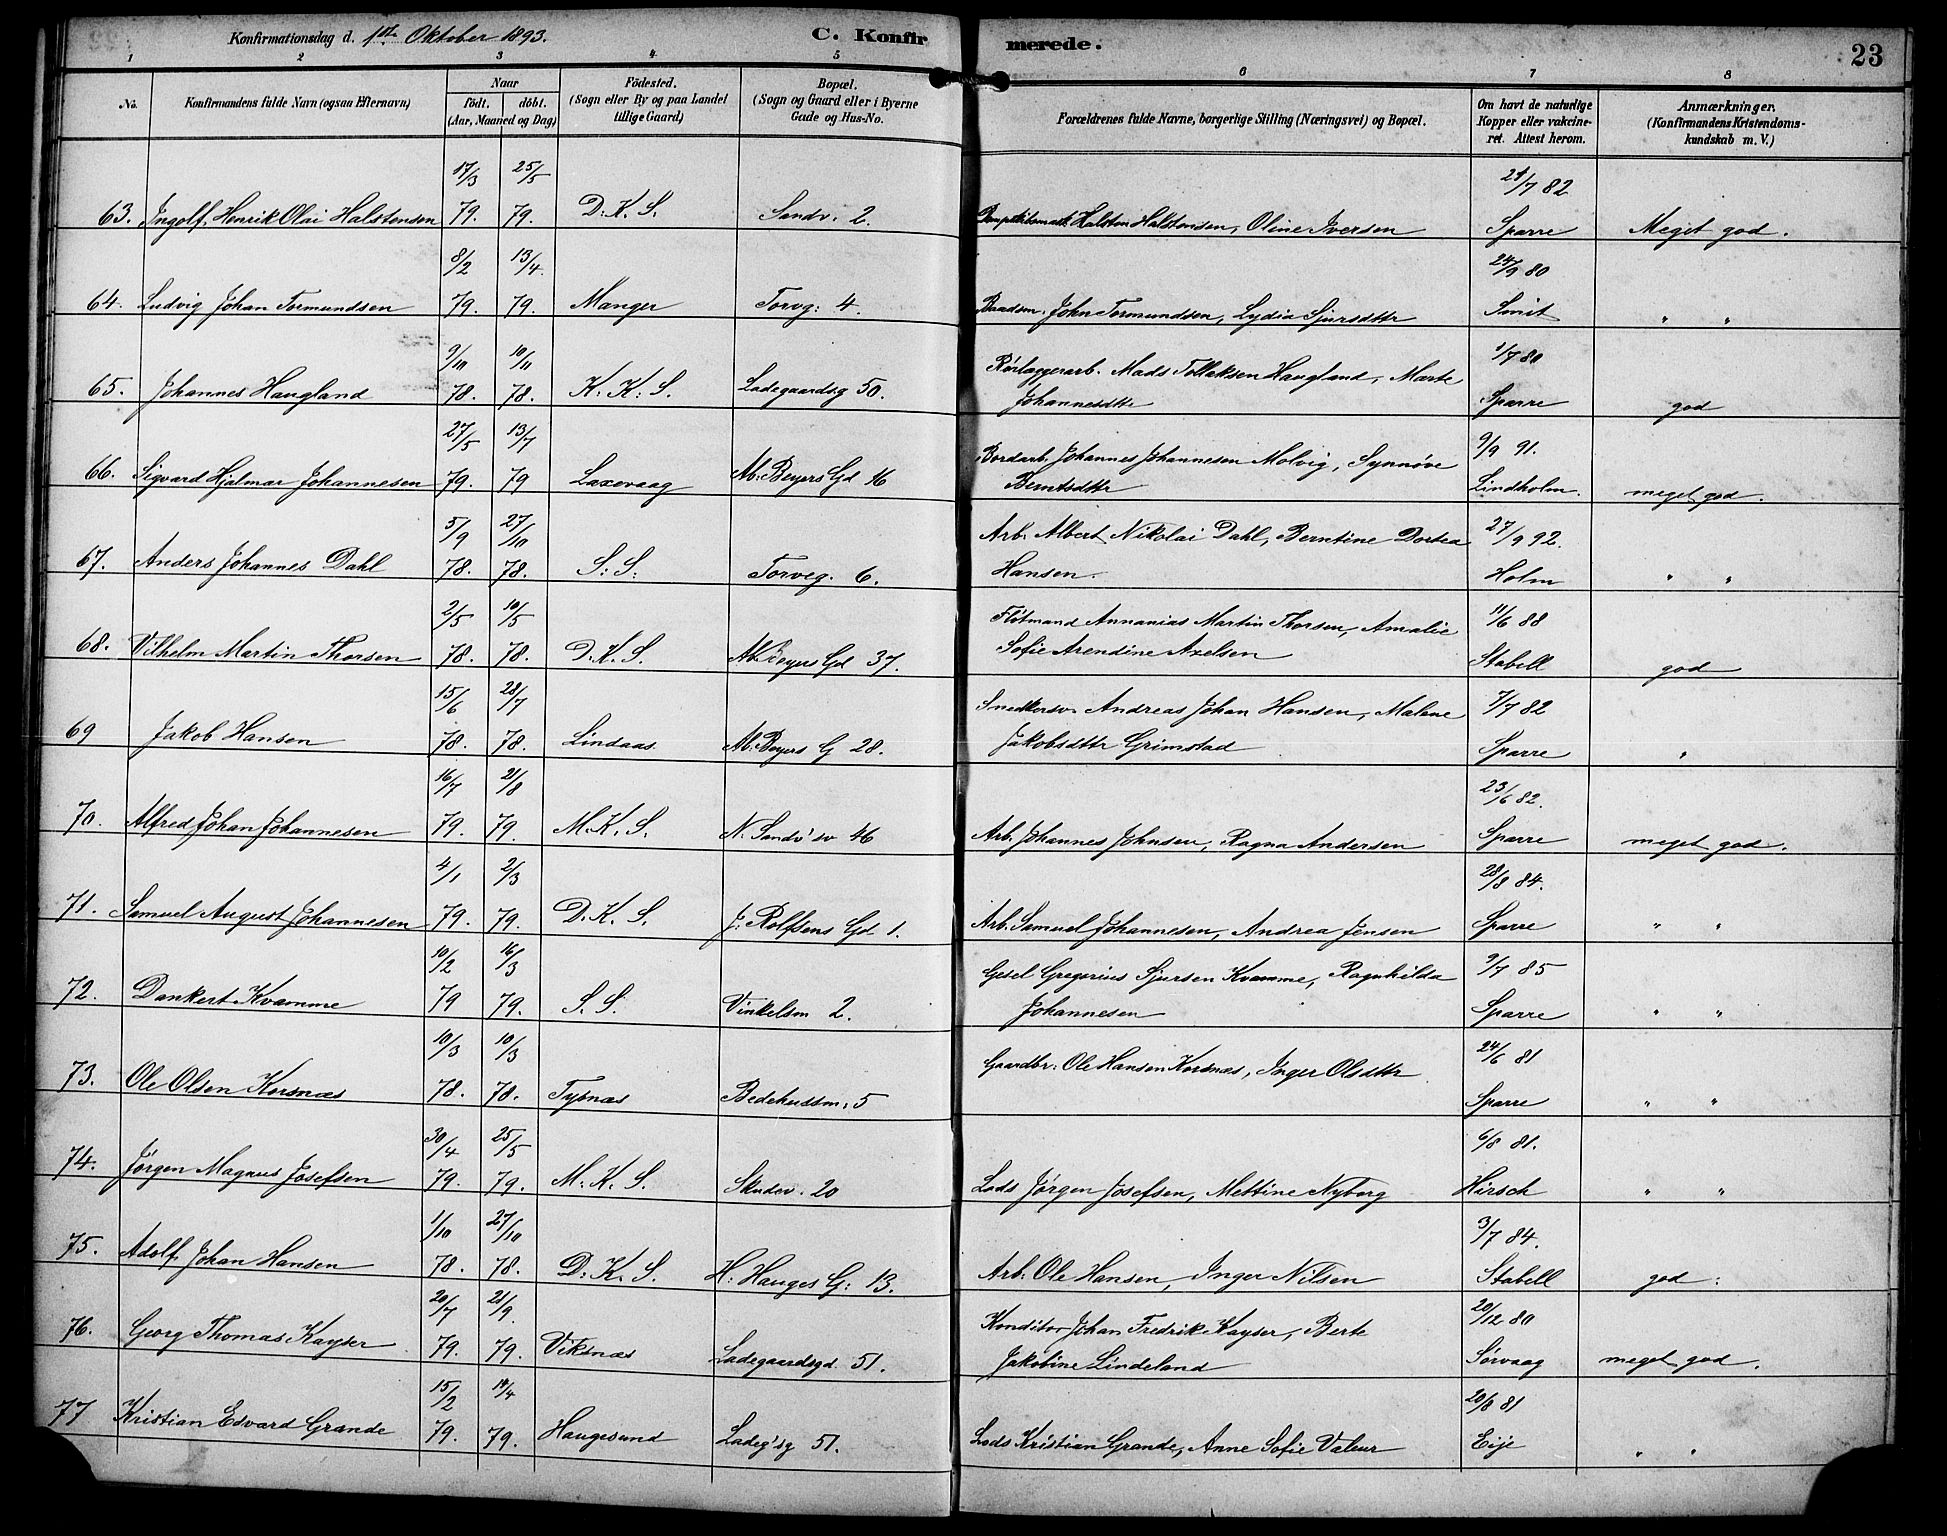 Konfirmationsdag d. 1ste Oktober 1893. C. Konfirmerede. 23
1 2 3 4 5 6 7 8
No. Konfirmandens fulde Navn (ogsaa Efternavn) Naar födt. döbt. (Aar, Maaned og Dag) Födested. (Sogn eller By og paa Landet tillige Gaard) Bopæl. (Sogn og Gaard eller i Byerne Gade og Hus-No. Forældrenes fulde Navne, borgerlige Stilling (Næringsvei) og Bopæl. Om havt de naturlige Kopper eller vakcineret. Attest herom. Anmærkninger. (Konfirmandens Kristendomskundskab m. V.)
63. Ingolf Henrik Olai Halstensen 17/3 79. 25/5 79. D. K. S. Sandv. 2. Halsten Halstensen, Oline Iversen 21/7 82 Sparre Meget god.
64. Ludvig Johan Tormundsen 8/2 79. 13/4 79. Manger Torvg: 4. Baadsm. John Tormundsen, Lydia Sjursdttr 24/9 80 Smit " "
65. Johannes Haugland 9/10 78. 10/11 78. K. K. S. Ladegaardsg 50. Rörlæggerarb. Mads Tollaksen Haugland, Marte
Johannesdttr 1/7 80 Sparre god
66. Sigvard Hjalmar Johannesen 27/5 79. 13/7 79 Laxevaag Ab. Beyers Gd 16 Bordarb. Johannes Johannesen Molvig, Synnöve
Berntsdttr 9/9 91. Lindholm. meget god.
67. Anders Johannes Dahl 5/9 78. 27/10 78. S: S: Torveg. 6. Arb. Albert Nikolai Dahl, Berntine Dortea
Hansen. 27/9 92. Holm " "
68. Vilhelm Martin Thorsen 2/5 78. 10/5 78. D. K. S. Ab. Beyers Gd 37. Flötmand Annanias Martin Thorsen, Amalie
Sofie Arendine Axelsen 11/6 88 Stabell god
69 Jakob Hansen 15/6 78. 28/7 78. Lindaas Ab. Beyers G 28. Snedkersv. Andreas Johan Hansen, Malene
Jakobsdttr Grimstad 7/7 82 Sparre "
70. Alfred Johan Johannesen 16/7 79. 21/8 79. M. K. S. N. Sandv'sv 46 Arb. Johannes Johnsen, Ragna Andersen 23/6 82. Sparre meget god.
71. Samuel August Johannesen 4/1 79. 2/3 79. D. K. S. J. Rolfsens Gd 1. Arb. Samuel Johannesen, Andrea Jensen 28/8 84. Sparre " "
72. Dankert Kvamme 10/2 79 16/3 79. S. S. Vinkelsm 2. Gesel Gregorius Sjursen Kvamme, Ragnhilda
Johannesen 9/7 85 Sparre " "
73. Ole Olsen Korsnæs 10/3 78. 10/3 78. Tysnæs Bedehussm. 5 Gaardbr. Ole Hansen Korsnæs, Inger Olsdttr 24/6 81 Sparre " "
74. Jörgen Magnus Josefsen 30/4 79. 25/5 79. M. K. S. Skudev. 20 Lods Jörgen Josefsen, Mettine Nyborg 6/8 81. Hirsch " "
75. Adolf Johan Hansen 1/10 78. 27/10 78. D. K. S. H. Hauges G: 13. Arb. Ole Hansen, Inger Nilsen 3/7 84. Stabell god.
76. Georg Thomas Kayser 20/7 79. 21/9. 79. Viksnæs Ladegaardsgd. 51. Konditor Johan Fredrik Kayser, Berte
Jakobine Lindeland 20/12 80 Sörvaag meget god.
77 Kristian Edvard Grande 15/2 79. 14/4 79. Haugesund Ladeg'sg 51. Lods Kristian Grande, Anne Sofie Valeur 20/8 81 Eije " "